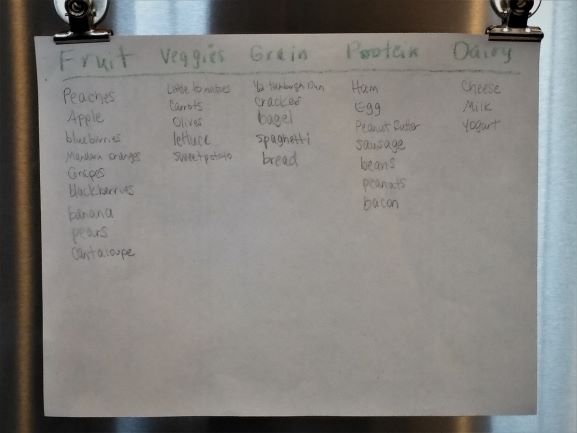 Fruit Veggies Grain Protein Dairy
Peaches
Apple
blueberries
Mandarin oranges
Grapes
blackberries
banana
pears
Cantaloupe
Little tomatoes
Carrots
Olives
lettuce
Sweet potato
1/2 Hamburger Bun
Cracker
bagel
spaghetti
bread
Ham
Egg
Peanut Butter
sausage
beans
peanuts
bacon
Cheese
Milk
yogurt